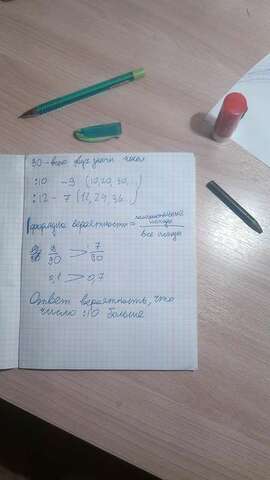 90 - всего двузначн чисел
:10 - 9 (10, 20, 30, ...)
:12 - 7 (12, 24, 36...)
формула вероятность = исходы / все исходы
9/90 > 7/90
0,1 > 0,7
Ответ вероятность, что
число :10 больше